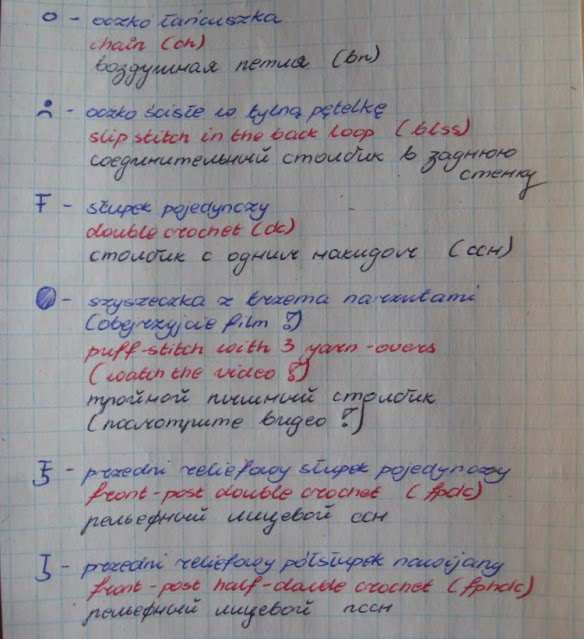 o - oczko łańcuszka
chain (ch)
воздушная петля (вп)
- oczko ścisłe w tylną pętelkę
slip stitch in the back loop (blss)
соединительный столбик в заднюю
стенку
- słupek pojedynczy
double crochet (dc)
столбик с одним накидом (ссн)
- szyszeczka z trzema narzutami
(obejrzyjcie film !)
puff-stitch with 3 yarn-overs
(watch the video !)
тройной пышный столбик
(посмотрите видео !)
- przedni reliefowy słupek pojedynczy
front-post double crochet (fpdc)
рельефный лицевой ссн
- przedni reliefowy półsłupek nawijany
front-post half-double crochet (fphdc)
рельефный лицевой пссн